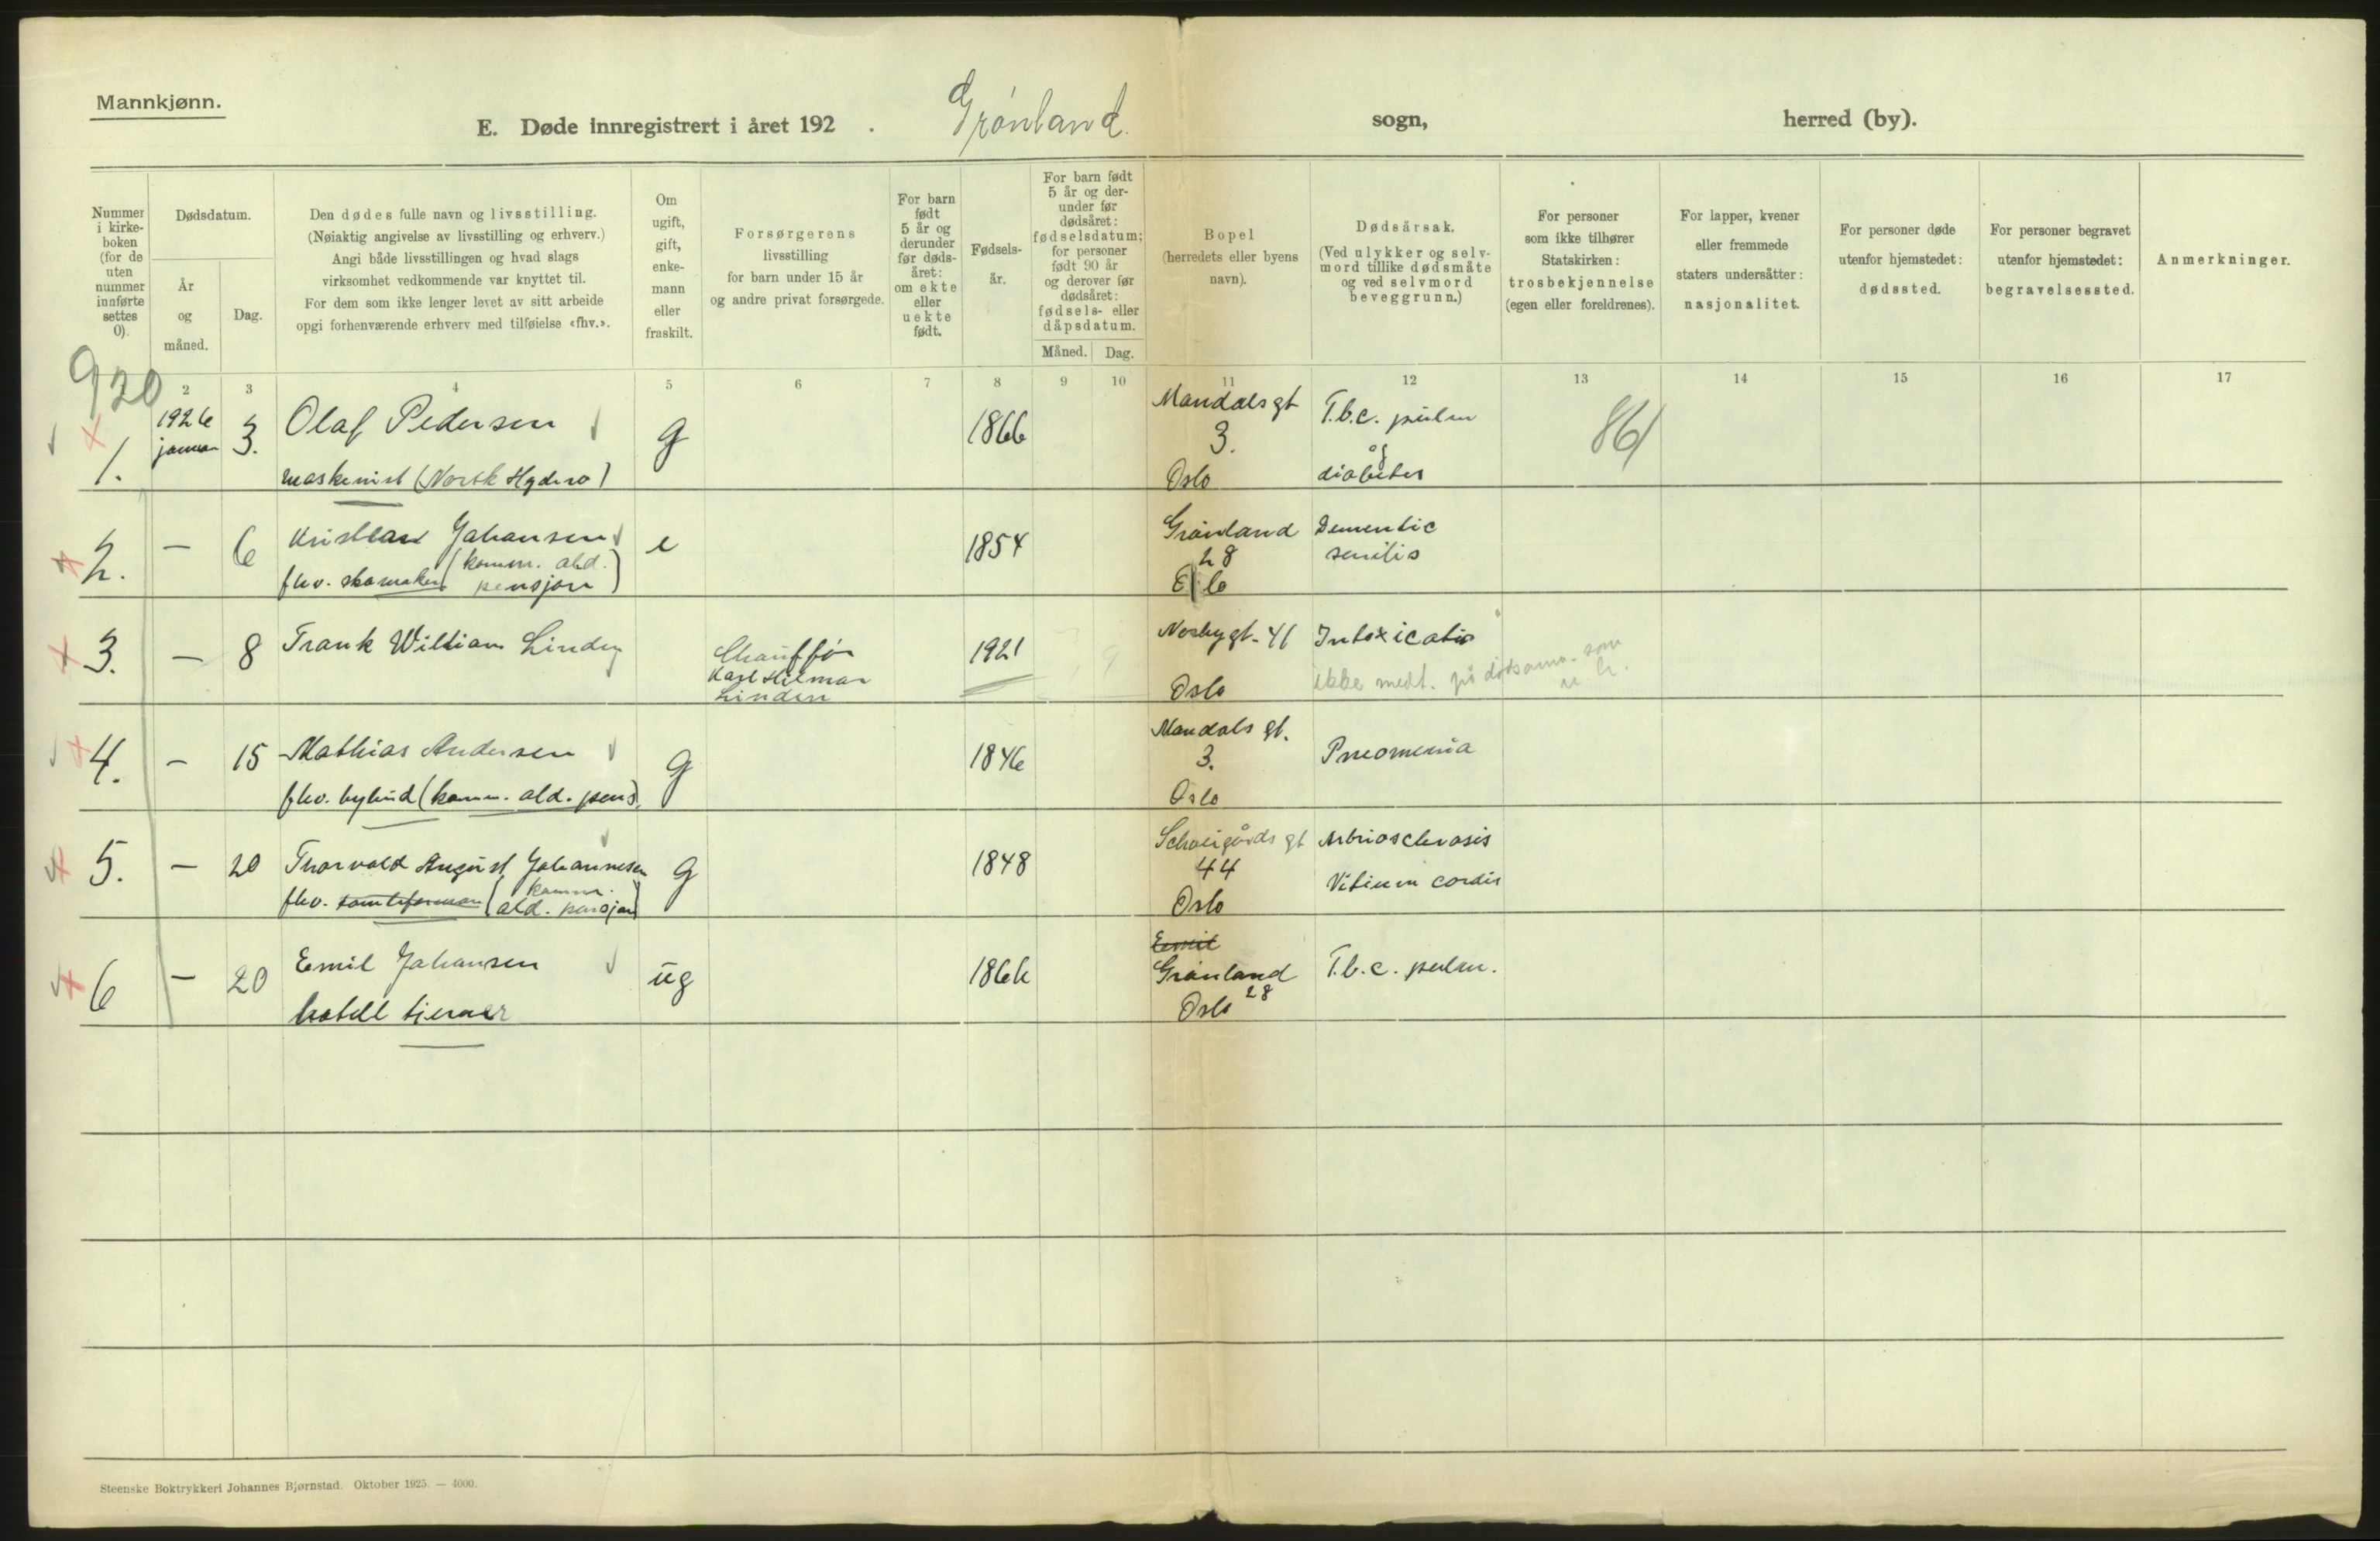 Mannkjønn.
E. Døde innregistrert i året 192 . Grønland. sogn, herred (by).
Nummer i kirke-boken (for de uten nummer innførte settes 0).
Dødsdatum.
År og måned.
Dag.
Den dødes fulle navn og livsstilling.
(Nøiaktig angivelse av livsstilling og erhverv.)
Angi både livsstillingen og hvad slags
virksomhet vedkommende var knyttet til.
For dem som ikke lenger levet av sitt arbeide
opgi forhenværende erhverv med tilføielse «fhv.».
Om ugift, gift, enke-mann eller fraskilt.
Forsørgerens
livsstilling
for barn under 15 år
og andre privat forsørgede.
For barn født 5 år og derunder før døds-året: om ekte eller uekte født.
Fødsels-år.
For barn født 5 år og der-under før dødsåret: fødselsdatum; for personer født 90 år og derover før dødsåret: fødsels- eller dåpsdatum.
Måned. Dag.
Bopel
(herredets eller byens
navn).
Dødsårsak.
(Ved ulykker og selv-
mord tillike dødsmåte
og ved selvmord
beveggrunn.)
For personer
som ikke tilhører
Statskirken:
trosbekjennelse
(egen eller foreldrenes).
For lapper, kvener
eller fremmede
staters undersåtter:
nasjonalitet.
For personer døde
utenfor hjemstedet:
dødssted.
For personer begravet
utenfor hjemstedet:
begravelsessted.
Anmerkninger.
920
2 3 4 5 6 7 8 9 10 11 12 13 14 15 16 17
1. 1926 januar 3. Olaf Pedersen g 1866 Mandals gt 3. Oslo T.b.c. pulm og diabetes 861
maskinist (Norsk Hydro)
2. — 6 Kristian Johansen e 1854 Grønland 28 Oslo Dementic senilis
fhv. skomaker (komm. ald. pensjon)
3. — 8 Frank William Linden Chauffør Karl Hilmar Linden 1921 Norbygt. 41 Oslo Intoxicatio
ikke medt. på dødsanm. som
4. — 15 Mathias Andersen g 1846 Mandals gt. 3. Oslo Pneomenia
fhv. bybud (komm. ald. pens).
5. — 20 Thorvald August Johannesen g 1848 Schweigårds gt 44 Oslo Artrioscherosis Vitium cordis
fhv. tomteformann (komm. ald. pensjon)
6 — 20 Emil Johansen ug 1866 Emil Grønland 28 Oslo T.b.c. pulm.
hotell tjener
Steenske Boktrykkeri Johannes Bjørnstad. Oktober 1925. — 4000.